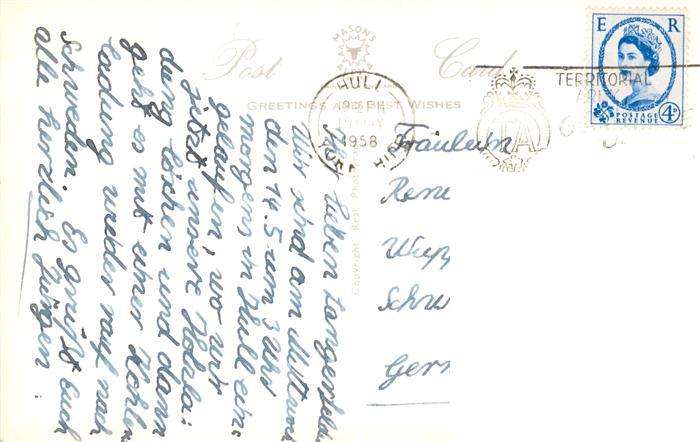 MASON'S
Post Card
GREETINGS AND BEST WISHES
HULL
1958
YORKSHIRE
TERRITORIAL
TA
E R
POSTAGE
REVENUE
4D
Copyright. Real Photo
Ihr Lieben
Wir sind am Mittwoch
den 14.5 um 3 Uhr
morgens in Hull ein
gelaufen, wo wir
jetzt unsere Holzla
dung löschen und dann
geht es mit einer Kohlen
ladung wieder rauf nach
Schweden. Es grüßt Euch
alle herzlich Jürgen
Fräulein
Rene
Wupp
Schw
Germ